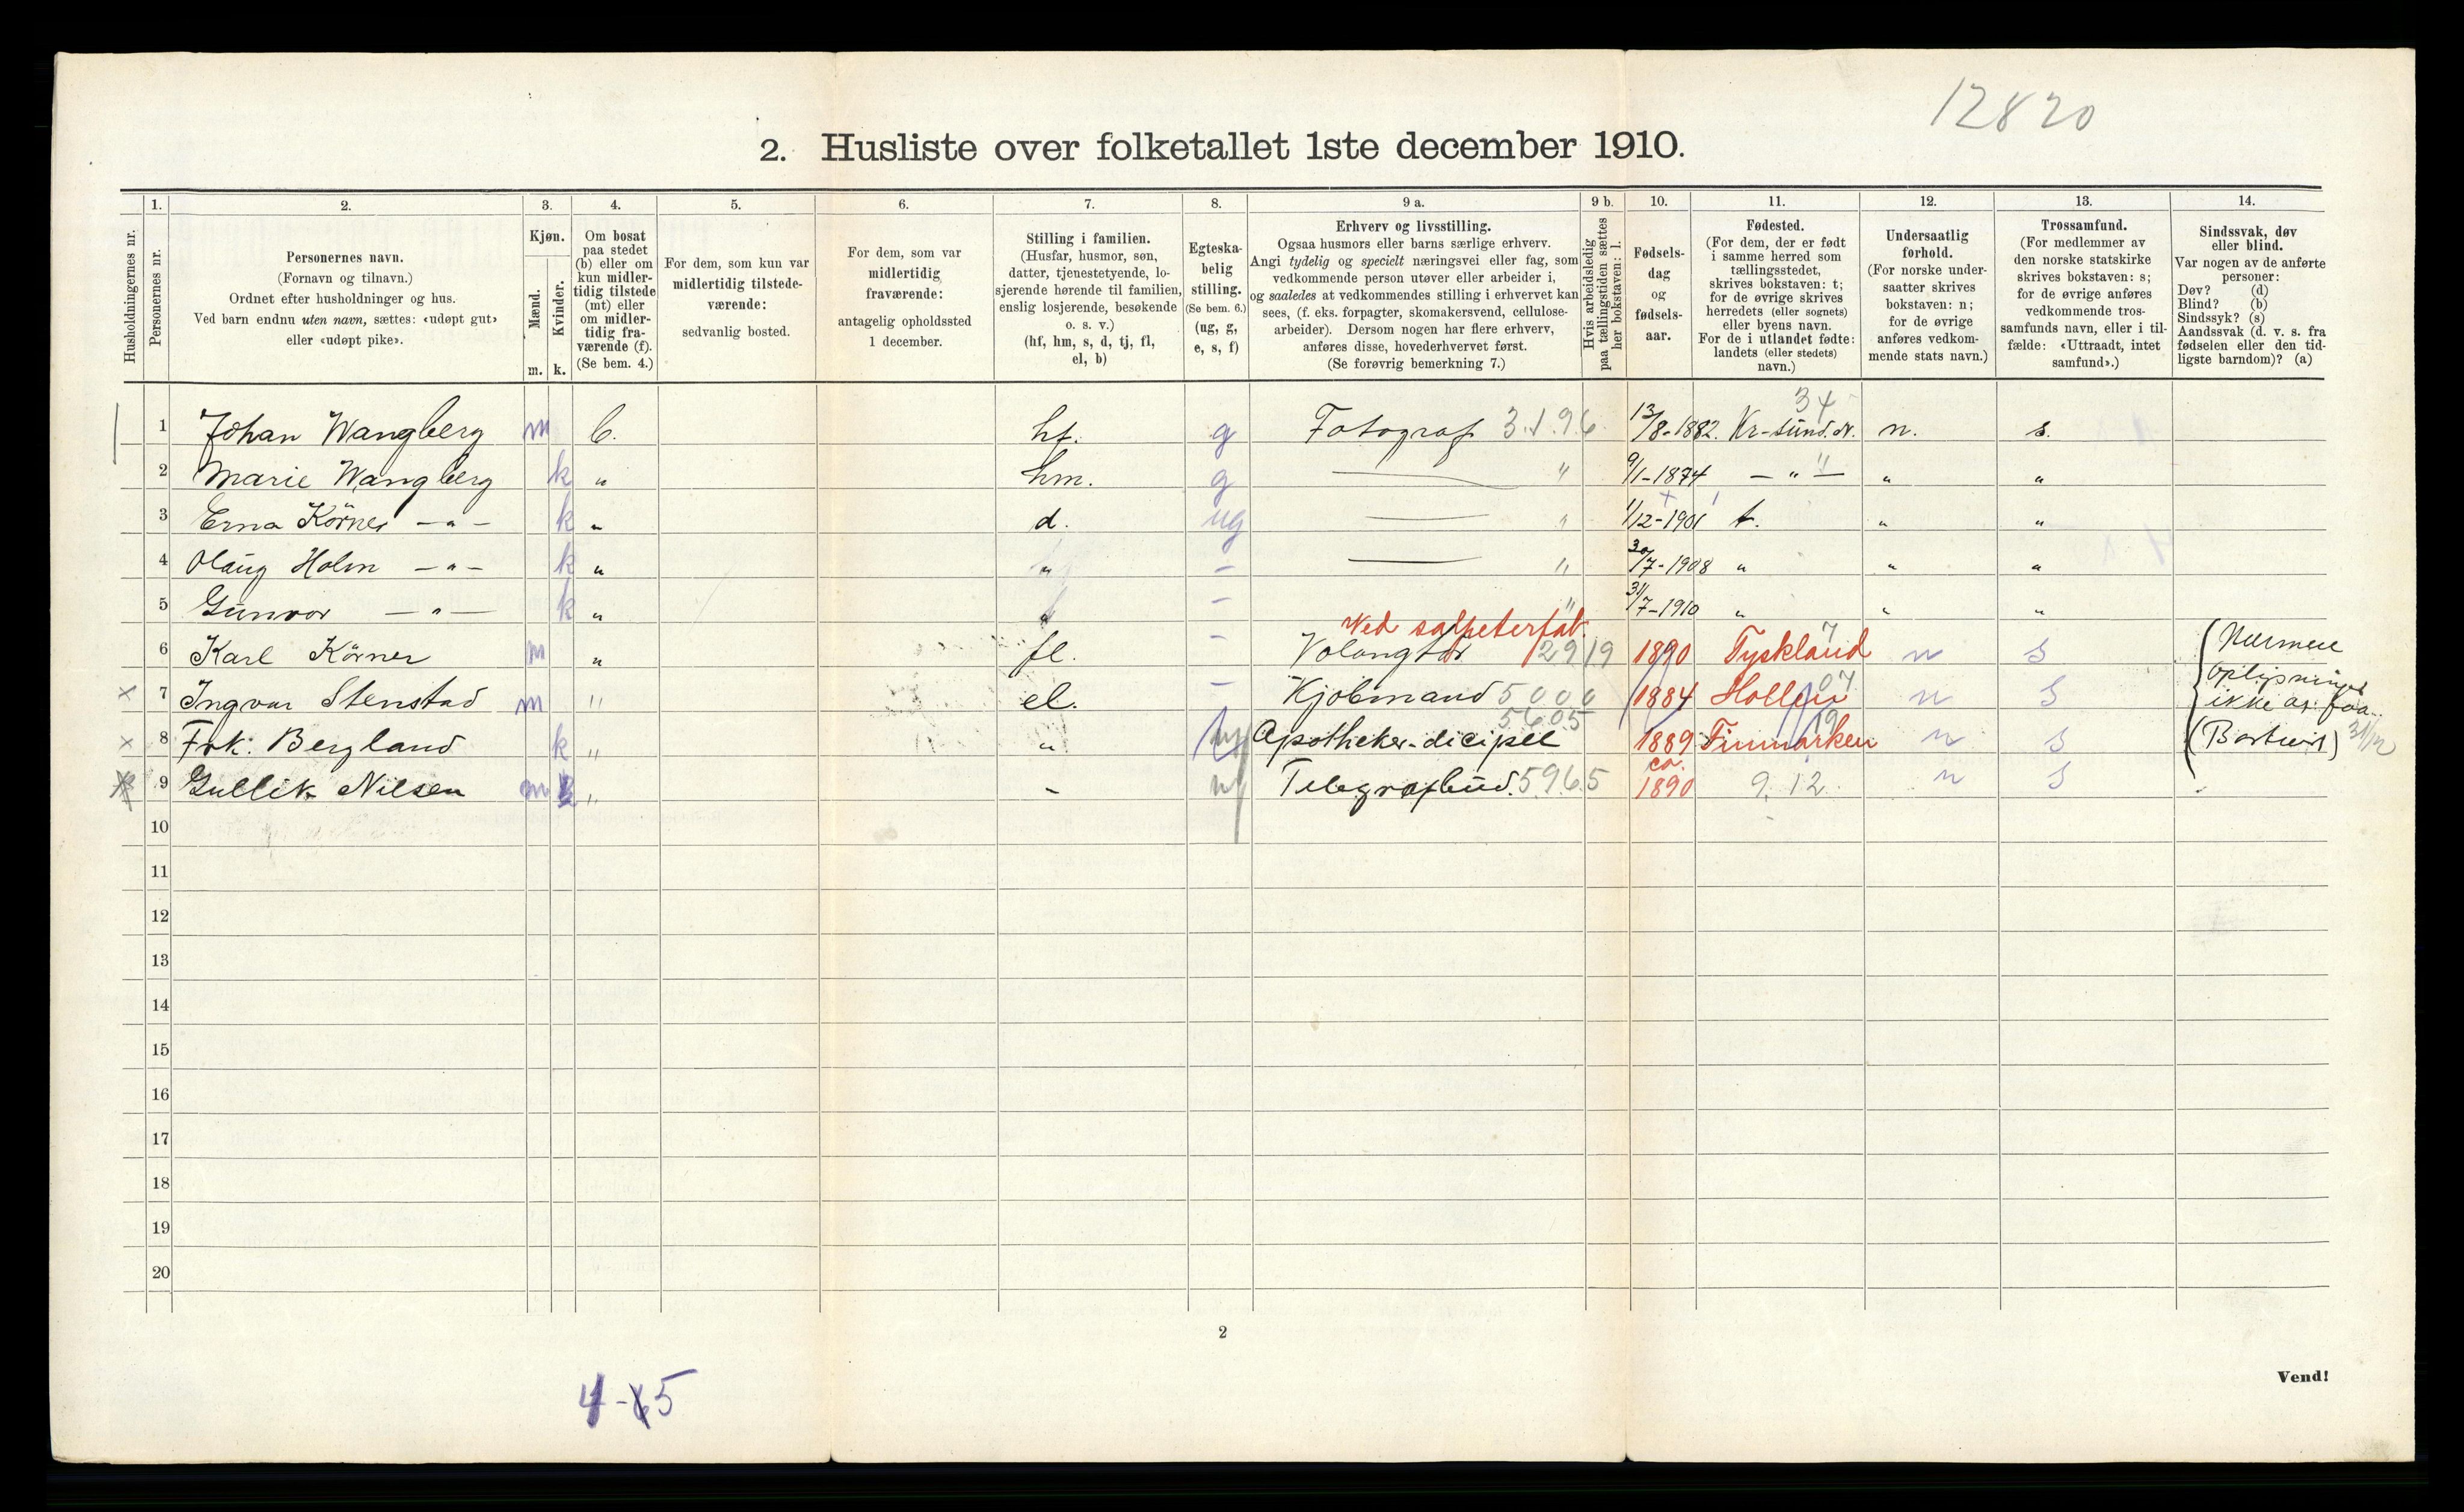 12820
2. Husliste over folketallet 1ste december 1910.
Husholdningernes nr.
1. Personernes nr.
2. Personernes navn.
(Fornavn og tilnavn.)
Ordnet efter husholdninger og hus.
Ved barn endnu uten navn, sættes: «udøpt gut»
eller «udøpt pike».
3. Kjøn.
Mænd. m.
Kvinder. k.
4. Om bosat
paa stedet
(b) eller om
kun midler-
tidig tilstede
(mt) eller
om midler-
tidig fra-
værende (f).
(Se bem. 4.)
5. For dem, som kun var
midlertidig tilstede-
værende:
sedvanlig bosted.
6. For dem, som var
midlertidig
fraværende:
antagelig opholdssted
1 december.
7. Stilling i familien.
(Husfar, husmor, søn,
datter, tjenestetyende, lo-
sjerende hørende til familien,
enslig losjerende, besøkende
o. s. v.)
(hf, hm, s, d, tj, fl,
el, b)
8. Egteska-
belig
stilling.
(Se bem. 6.)
(ug, g,
e, s, f)
9 a. Erhverv og livsstilling.
Ogsaa husmors eller barns særlige erhverv.
Angi tydelig og specielt næringsvei eller fag, som
vedkommende person utøver eller arbeider i,
og saaledes at vedkommendes stilling i erhvervet kan
sees, (f. eks. forpagter, skomakersvend, cellulose-
arbeider). Dersom nogen har flere erhverv,
anføres disse, hovederhvervet først.
(Se forøvrig bemerkning 7.)
9 b. Hvis arbeidsledig
paa tællingstiden sættes
her bokstaven: l.
10. Fødsels-
dag
og
fødsels-
aar.
11. Fødested.
(For dem, der er født
i samme herred som
tællingsstedet,
skrives bokstaven: t;
for de øvrige skrives
herredets (eller sognets)
eller byens navn.
For de i utlandet fødte:
landets (eller stedets)
navn.)
12. Undersaatlig
forhold.
(For norske under-
saatter skrives
bokstaven: n;
for de øvrige
anføres vedkom-
mende stats navn.)
13. Trossamfund.
(For medlemmer av
den norske statskirke
skrives bokstaven: s;
for de øvrige anføres
vedkommende tros-
samfunds navn, eller i til-
fælde: «Uttraadt, intet
samfund».)
14. Sindssvak, døv
eller blind.
Var nogen av de anførte
personer:
Døv? (d)
Blind? (b)
Sindssyk? (s)
Aandssvak (d. v. s. fra
fødselen eller den tid-
ligste barndom)? (a)
34
1 Johan Wangberg m b. hf. g Fotograf 3.1.9.6 13/8-1882. Kr-sund.N. n. s.
2 Marie Wangberg k " hm. g — " 9/1-1874 — " — " "
3 Erna Körner — " — k " d. ug — " 1/12-1901 t. " "
4 Olaug Holm — " — k " " — — " 30/7-1908 " " "
5 Gunvor — " — k " " — " 31/7-1910 " " "
Ved salpeterfab. 7
6 Karl Körner m " fl. — Volontør 2919 1890 Tyskland n s
07
x 7 Ingvar Stenstad m " el. — Kjøbmand 5000 1884 Hollen n s
5605 19
x 8 Frk. Bergland k " " Apotheker-dicipel 1889 Finmarken n s (Bortreist) 31/12
ca.
9 Gullik Nilsen m " - Telegrafbud. 5965 1890 9.12 n s
Nærmere
ikke at faa.
10
11
12
13
14
15
16
17
18
19
20
2
4-5
Vend!